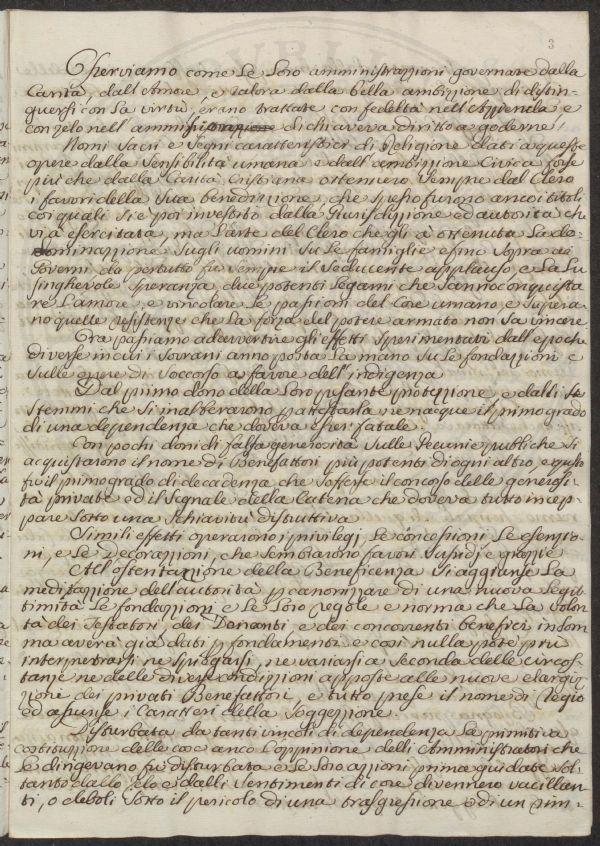 3
Osserviamo come le loro amministrazioni governate dalla
Carità, dall'Amore, e talora dalla bella ambizione di distin-
guersi con la virtù, erano trattate con fedeltà nell'Azienda, e
con zelo nell'ammi di chi aveva diritto a goderne.
Nomi Sacri e segni caratteristici di Religione dati a queste
opere dalla sensibilità umana e dall'ambizione Civica forse
più che dalla Carità Cristiana ottennero sempre dal Clero
i favori della sua benedizione, che spesso furono anco i titoli
coi quali si è poi investito dalla Giurisdizione ed autorità che
vi à esercitata, ma l'arte del Clero che gli à ottenuta la do-
minazione sugli uomini su le famiglie e fino sopra ai
Governi, da pertutto fu sempre il seducente applauso, e la lu
singhevole speranza, due potenti legami che sanno conquista
re l'amore, e vincolare le passioni del core umano, e supera
no quelle resistenze che la forza del potere armato non sa vincere
Ora passiamo ad avvertire gli effetti sperimentati dall'epoche
diverse in cui i Sovrani anno posta la mano su le fondazioni e
sulle opere di soccorso a favore dell'indigenza
Dal primo dono della loro pesante protezione, e dalli
Stemmi che si inalberarono p attestarla ne nacque il primo grado
di una dependenza che doveva esser fatale.
Con pochi doni di falsa generosità sulle Pecunie publiche si
acquistarono il nome di Benefattori più potenti di ogni altro, e questo
fu il primo grado di decadenza che sofferse il concorso delle generosi-
tà private ed il segnale della Catena che doveva tutto incep-
pare sotto una schiavitù distruttiva
Simili effetti operarono i privilegi, le concessioni le esenzio-
ni, e le Decorazioni, che sembrarono favori sussidj e grazie
All'ostentazione della Beneficenza si aggiunse la
meditazione dell'autorità p canonizzare di una nuova legit
timità le fondazioni e le loro regole e norma che la volon
tà dei Testatori, dei Donanti e dei concorrenti benefici in som
ma averà già dati p fondamento e così nulla potè più
interpretarsi ne spiegarsi, ne variarsi a seconda delle circos-
tanze ne delle diverse condizioni apposte alle nuove elargi-
zioni dei privati Benefattori, e tutto prese il nome di Regio
ed assunse i Caratteri della soggezione.
Disturbata da tanti vincoli di dependenza la primitiva
costituzione delle cose anco l'oppinione delli Amministratori che
le dirigevano fu disturbata e le loro azzioni prima guidate sol-
tanto dallo zelo e dalli sentimenti di core divennero vacillan-
ti, o deboli sotto il pericolo di una trasgressione o di un rim-